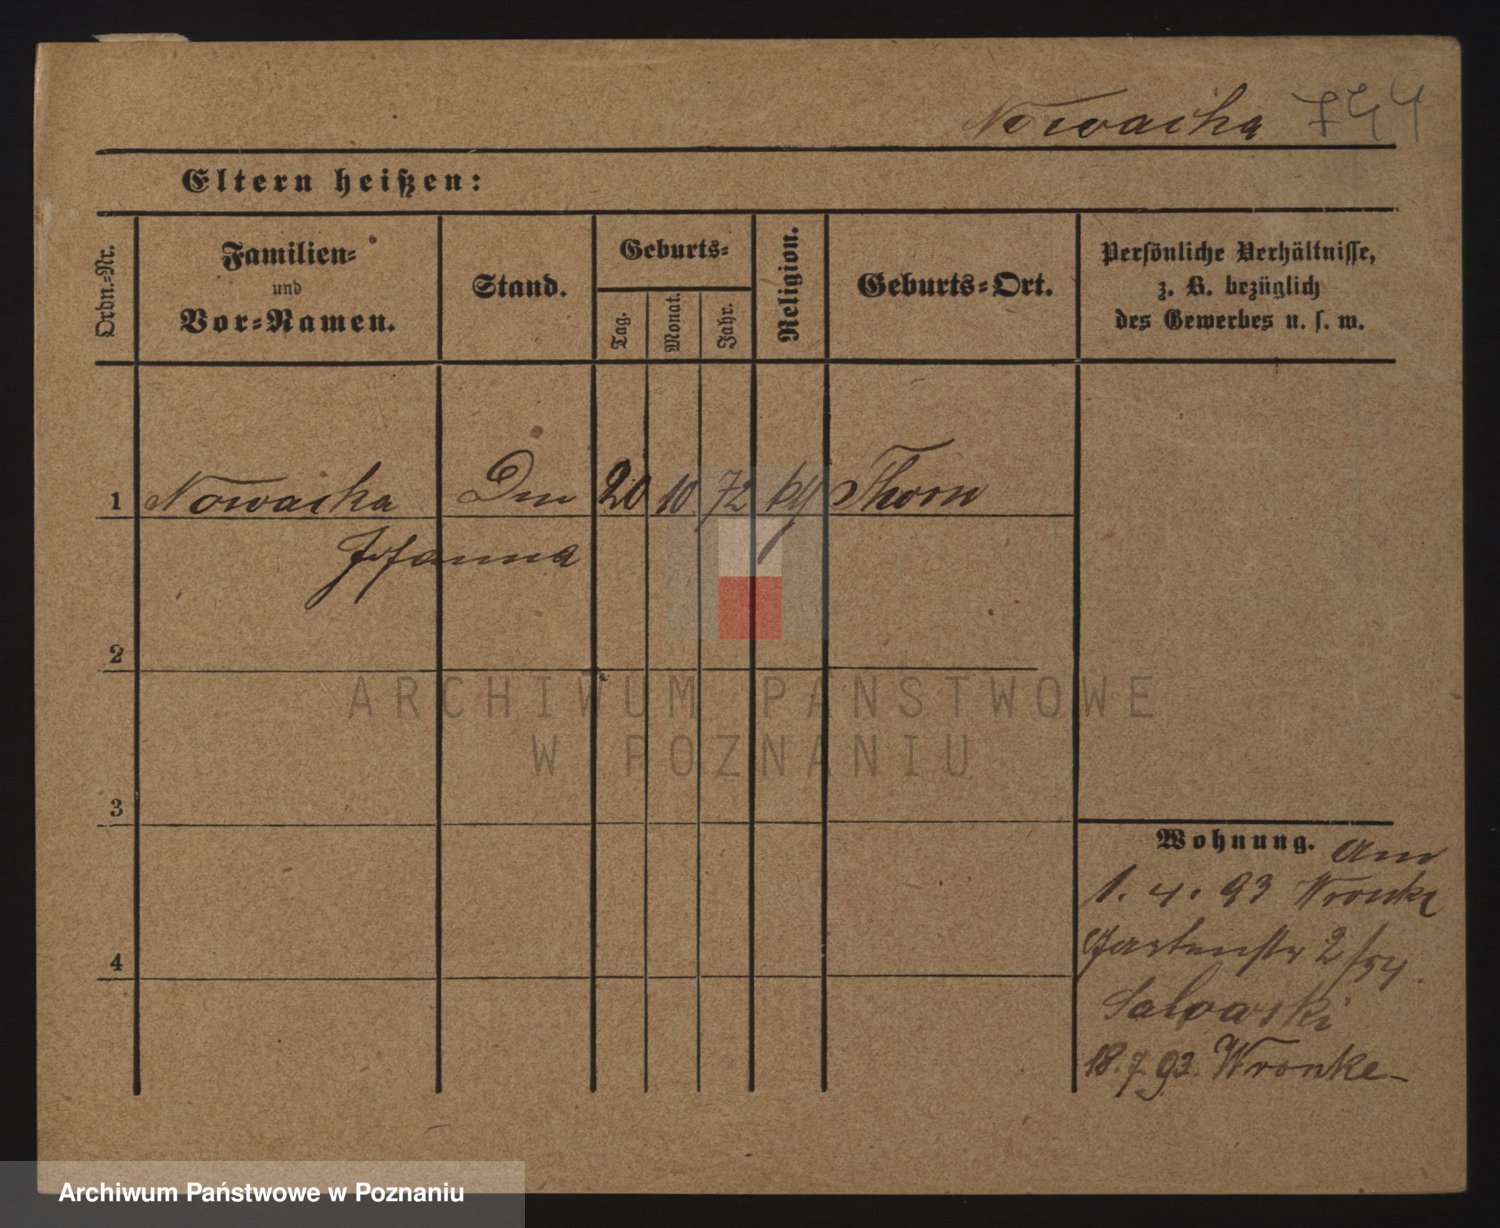 Nowacka 744
Eltern heißen:
Ordn.-Nr.
Familien-
und
Vor-Namen.
Stand.
Geburts-
Tag.
Monat.
Jahr.
Religion.
Geburts-Ort.
Persönliche Verhältnisse,
z. B. bezüglich
des Gewerbes u. s. w.
1 Nowacka 20 10 72 Thorn
Johanna
2
3
4
Wohnung. am
1. 4. 93 Wronke
Gartenstr 2/
18. 7. 93. Wronke
ARCHIWUM PAŃSTWOWE
W POZNANIU
Archiwum Państwowe w Poznaniu